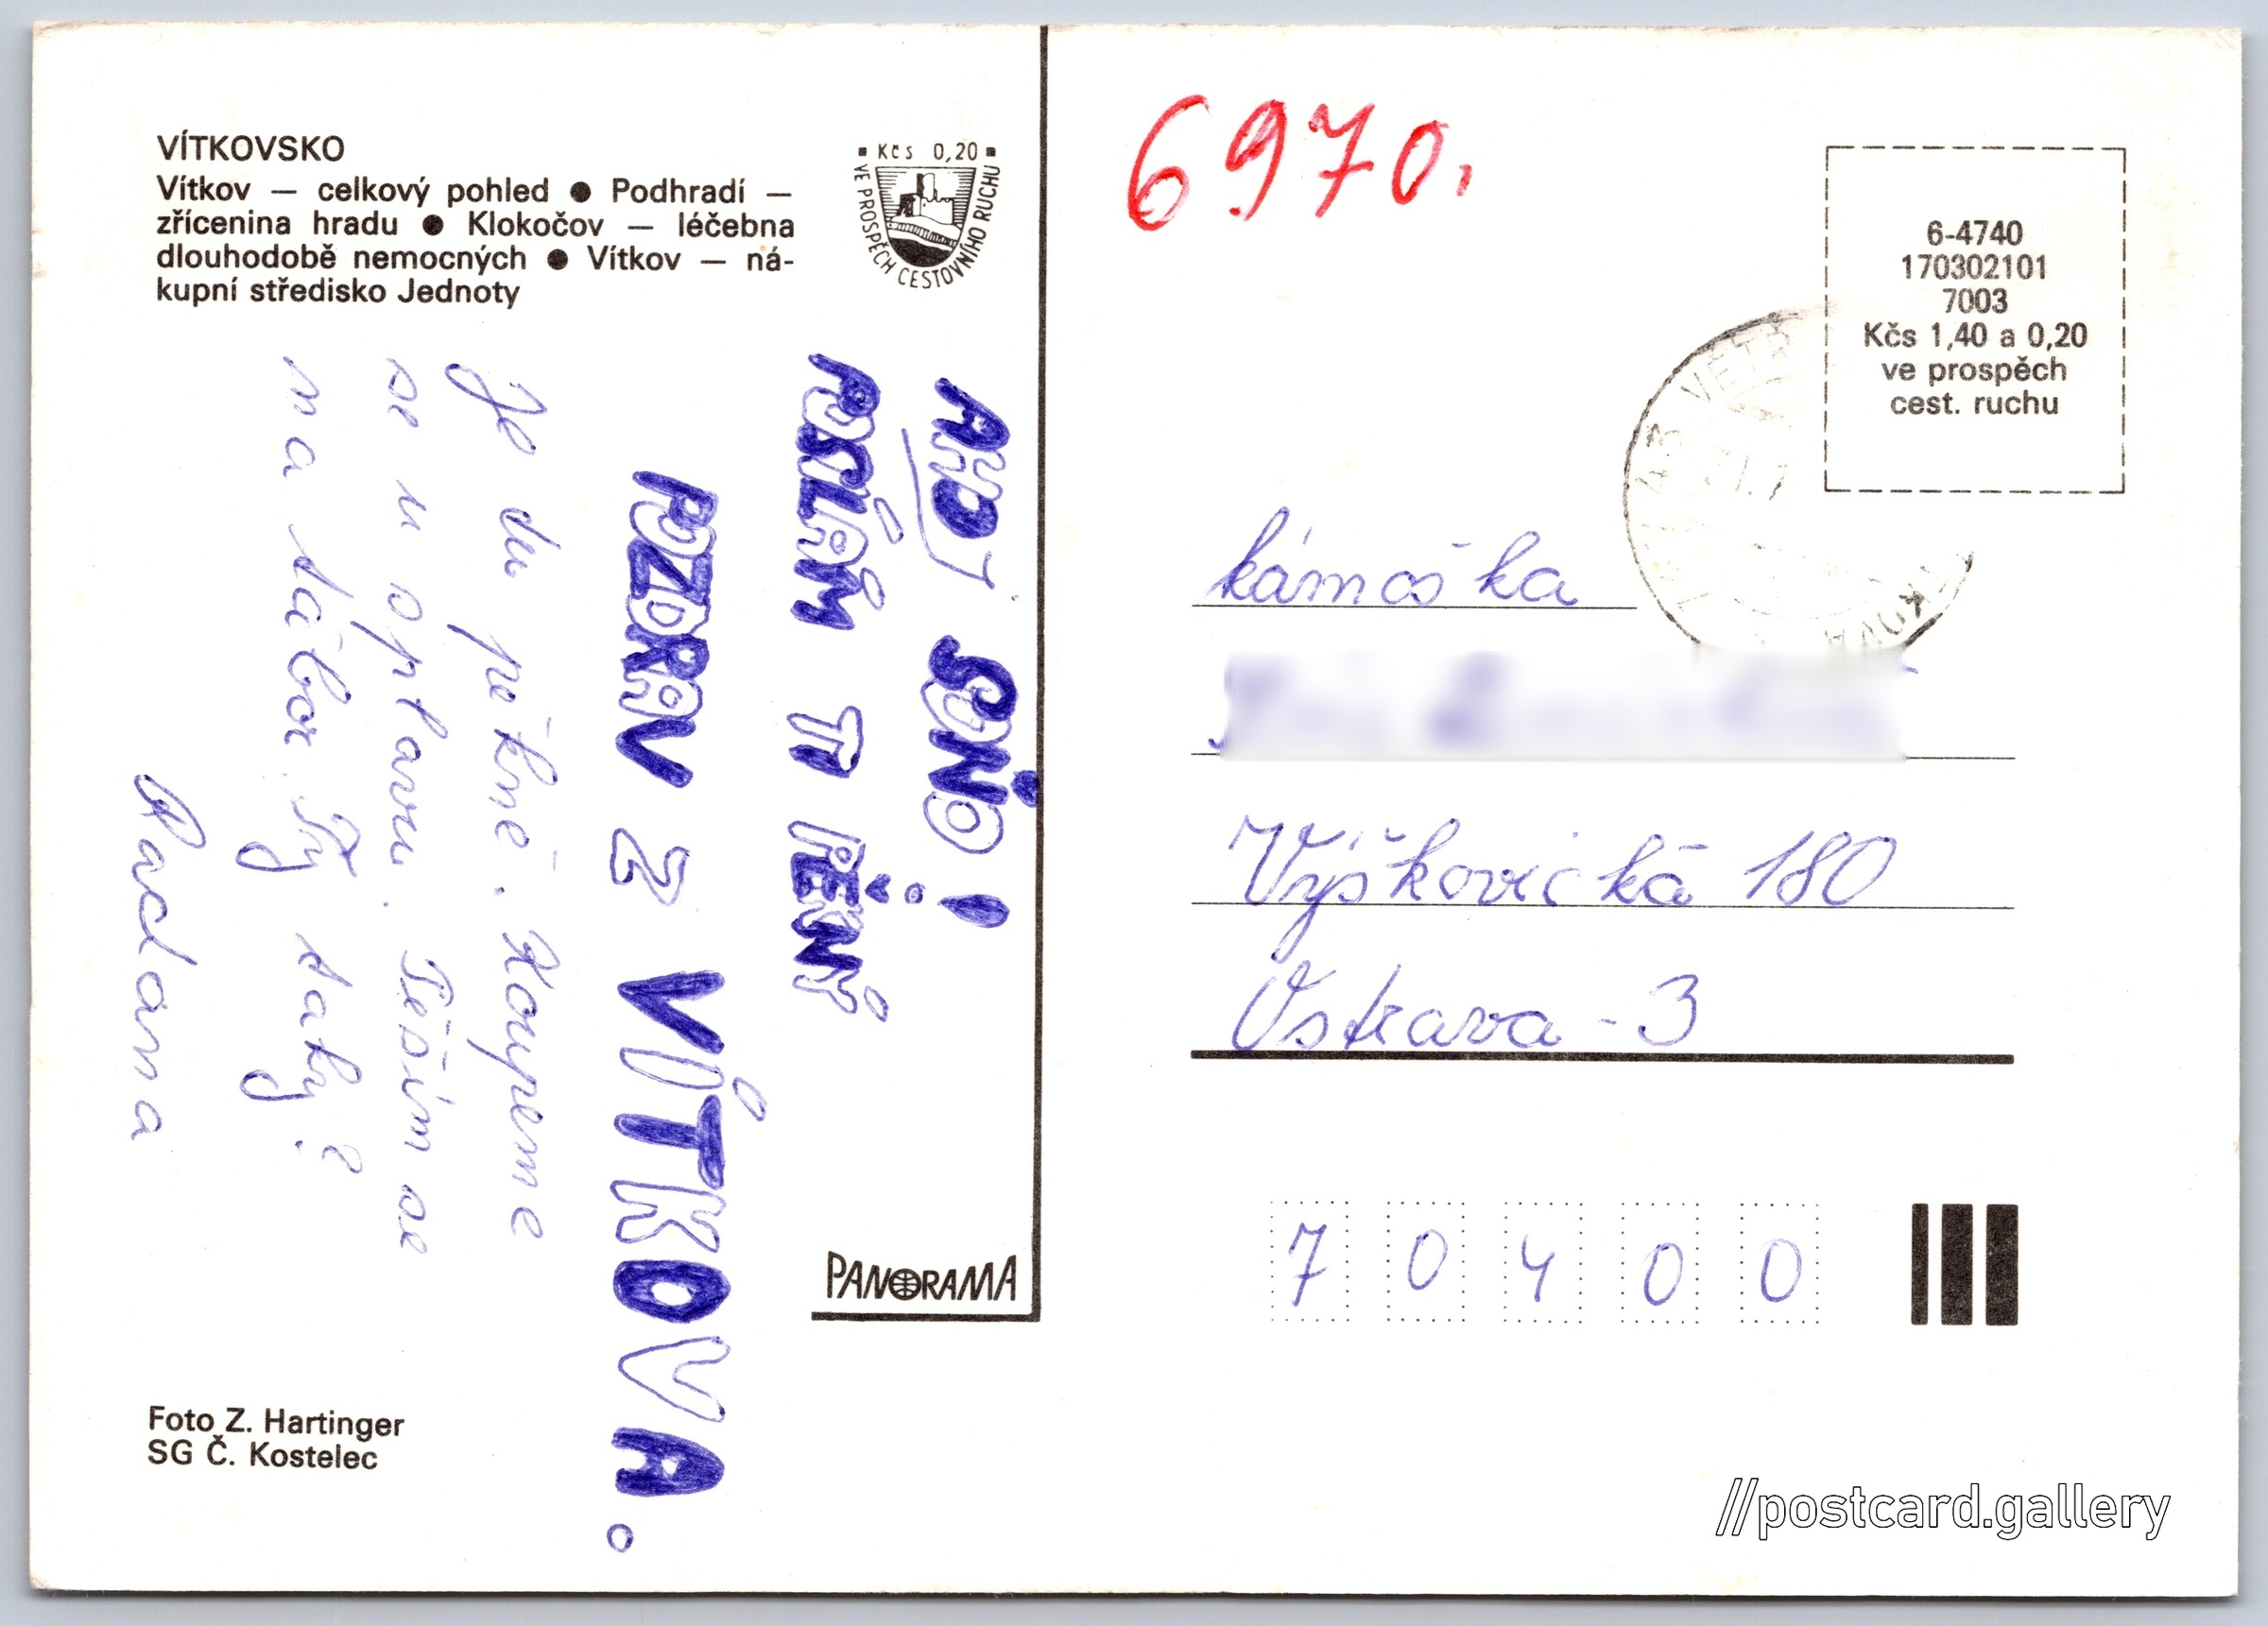 VÍTKOVSKO
Vítkov — celkový pohled ● Podhradí —
zřícenina hradu ● Klokočov — léčebna
dlouhodobě nemocných ● Vítkov — ná-
kupní středisko Jednoty
Kčs 0,20
VE PROSPĚCH CESTOVNÍHO RUCHU
AHOJ SOŇO!
POSÍLÁM TI PĚKNÝ
POZDRAV Z VÍTKOVA.
Je du pěkně. Koupeme
se u splavu. Těším se
na tábor. Ty taky?
Radana
PANORAMA
Foto Z. Hartinger
SG Č. Kostelec
6970.
6-4740
170302101
7003
Kčs 1,40 a 0,20
ve prospěch
cest. ruchu
747 43 VĚTŘKOV
kámoška
Výškovická 180
Ostrava - 3
7 0 4 0 0
//postcard.gallery